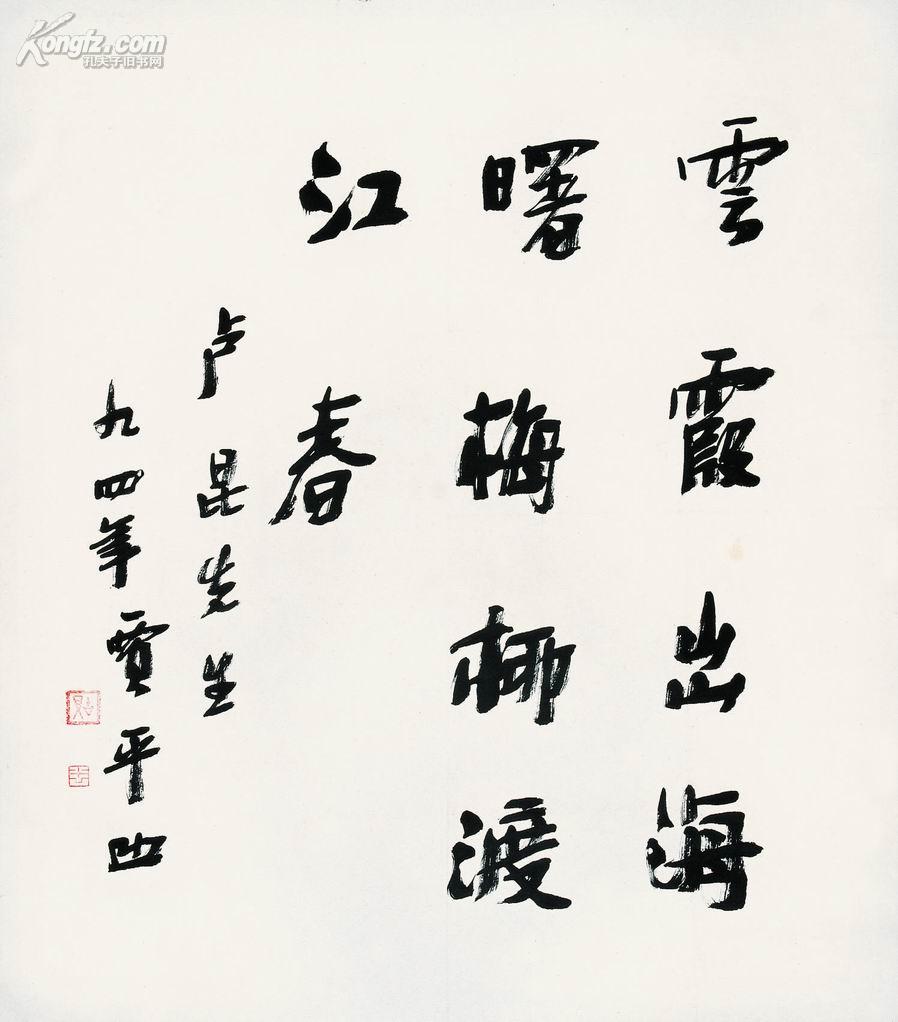 雲霞出海
曙梅柳渡
江春
卢昆先生
九四年賈平凹
Kongfz.com
孔夫子旧书网